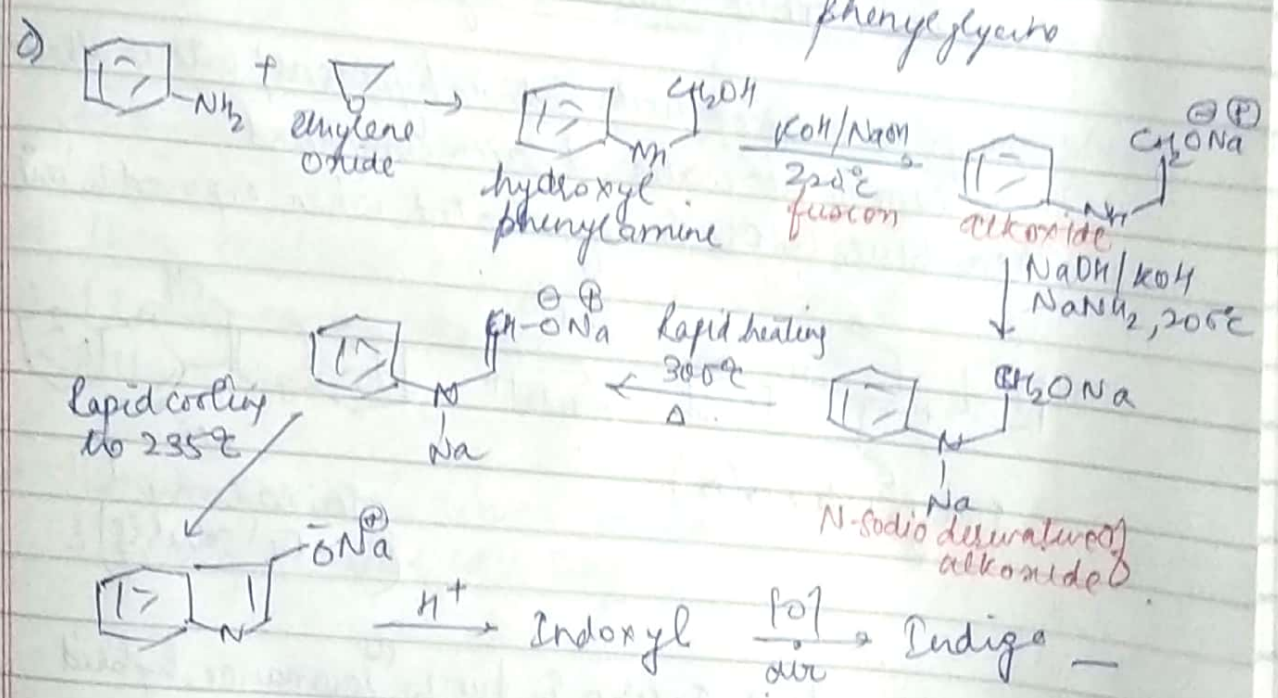 phenylglycino
c)
NH₂
+
O
ethylene
oxide
CH₂OH
NH
hydroxyl
phenylamine
KOH/NaOH
220°C
fusion
⊖ ⊕
CH₂ONa
NH
alkoxide
NaOH/KOH
NaNH₂, 206°C
CH₂ONa
N
Na
N-Sodio derivative of
alkoxide
Rapid heating
300°C
Δ
⊖ ⊕
CH-ONa
N
Na
Rapid cooling
to 235°C
ŌNa⊕
N
H⁺
Indoxyl
[O]
air
Indigo